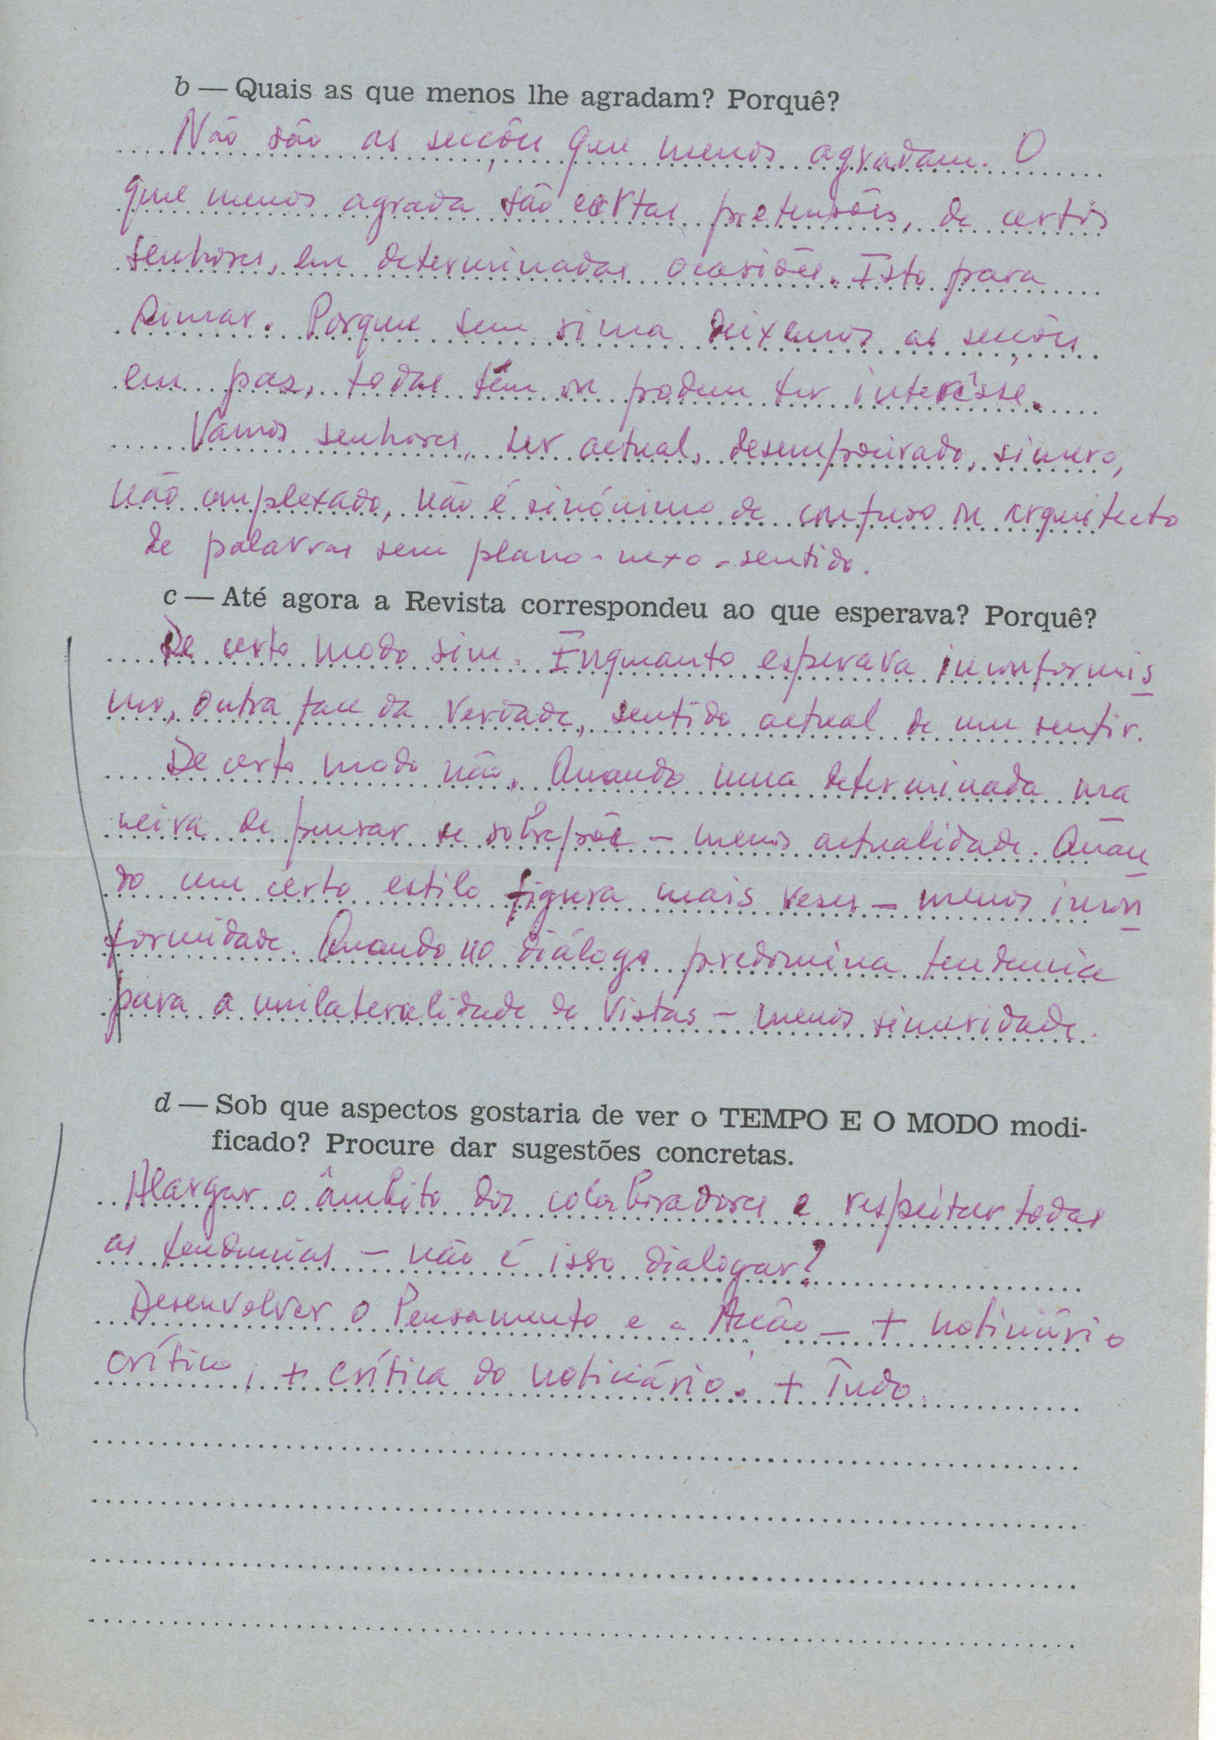 b — Quais as que menos lhe agradam? Porquê?
Não são as secções que menos agradam. O
que menos agrada são certas pretensões, de certos
senhores, em determinadas ocasiões. Isto para
rimar. Porque sem rima deixemos as secções
em paz, todas têm ou podem ter interêsse.
Vamos senhores, ser actual, desempoeirado, sincero,
não complexado, não é sinónimo de confuso ou arquitecto
de palavras sem plano - nexo - sentido.
c — Até agora a Revista correspondeu ao que esperava? Porquê?
De certo modo sim. Enquanto esperava inconformis
mo, outra face da verdade, sentido actual de um sentir.
De certo modo não. Quando uma determinada ma
neira de pensar se sobrepõe — menos actualidade. Quan
do um certo estilo figura mais vezes — menos incon
formidade. Quando no diálogo predomina tendencia
para a unilateralidade de vistas — menos sinceridade.
d — Sob que aspectos gostaria de ver o TEMPO E O MODO modi-
ficado? Procure dar sugestões concretas.
Alargar o âmbito dos colaboradores e respeitar todas
as tendencias — não é isso dialogar?
Desenvolver o Pensamento e a Acção — + noticiário
crítico, + crítica do noticiário. + Tudo.